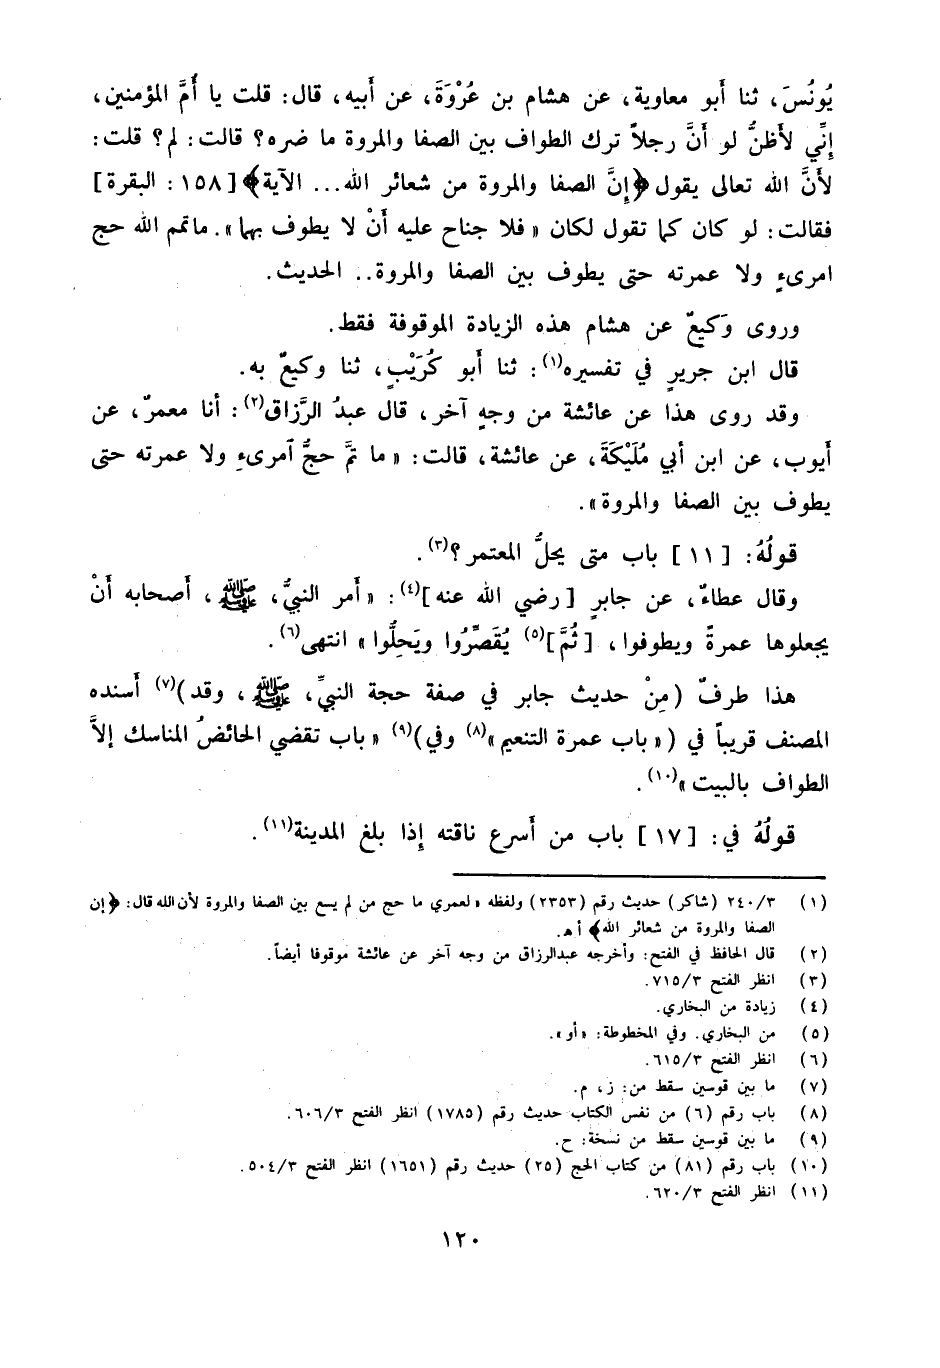 يُونُسَ، ثنا أبو معاوية، عن هشام بن عُرْوَةَ، عن أَبيه، قال: قلت يا أُمَّ المؤمنين،
إِنِّي لأَظنُّ لو أَنَّ رجلاً ترك الطواف بين الصفا والمروة ما ضره؟ قالت: لم؟ قلت:
لأَنَّ الله تعالى يقول ﴿إِنَّ الصفا والمروة من شعائر الله... الآية﴾ [١٥٨: البقرة]
فقالت: لو كان كما تقول لكان « فلا جناح عليه أَنْ لا يطوف بهما ». ماتمم الله حج
امرىءٍ ولا عمرته حتى يطوف بين الصفا والمروة.. الحديث.
وروى وَكيعٌ عن هشام هذه الزيادة الموقوفة فقط.
قال ابن جريرٍ في تفسيره(١): ثنا أَبو كُرَيْبٍ، ثنا وكيعٌ به.
وقد روى هذا عن عائشة من وجهٍ آخر، قال عبدُ الرَّزاق(٢): أنا معمرٌ، عن
أَيوب، عن ابن أبي مُلَيْكَةَ، عن عائشة، قالت: « ما تمَّ حجُّ آمرىءٍ ولا عمرته حتى
يطوف بين الصفا والمروة ».
قولُهُ: [١١] باب متى يحلُّ المعتمر؟(٣).
وقال عطاءٌ، عن جابرٍ [رضي الله عنه](٤): « أَمر النبيُّ، ﷺ، أَصحابه أَنْ
يجعلوها عمرةً ويطوفوا، [ثُمَّ](٥) يُقَصِّرُوا ويَحِلُّوا » انتهى(٦).
هذا طرفٌ (مِنْ حديث جابر في صفة حجة النبيِّ، ﷺ، وقد)(٧) أَسنده
المصنف قريباً في (« باب عمرة التنعيم »(٨) وفي)(٩) « باب تقضي الحائضُ المناسك إِلاَّ
الطواف بالبيت »(١٠).
قولُهُ في: [١٧] باب من أَسرع ناقته إِذا بلغ المدينة(١١).
(١) ٢٤٠/٣ (شاكر) حديث رقم (٢٣٥٣) ولفظه « لعمري ما حج من لم يسع بين الصفا والمروة لأن الله قال: ﴿إن
الصفا والمروة من شعائر الله﴾ أهـ.
(٢) قال الحافظ في الفتح: وأخرجه عبدالرزاق من وجه آخر عن عائشة موقوفا أيضاً.
(٣) انظر الفتح ٧١٥/٣.
(٤) زيادة من البخاري.
(٥) من البخاري. وفي المخطوطة: « أو ».
(٦) انظر الفتح ٦١٥/٣.
(٧) ما بين قوسين سقط من: ز، م.
(٨) باب رقم (٦) من نفس الكتاب حديث رقم (١٧٨٥) انظر الفتح ٦٠٦/٣.
(٩) ما بين قوسين سقط من نسخة: ح.
(١٠) باب رقم (٨١) من كتاب الحج (٢٥) حديث رقم (١٦٥١) انظر الفتح ٥٠٤/٣.
(١١) انظر الفتح ٦٢٠/٣.
١٢٠